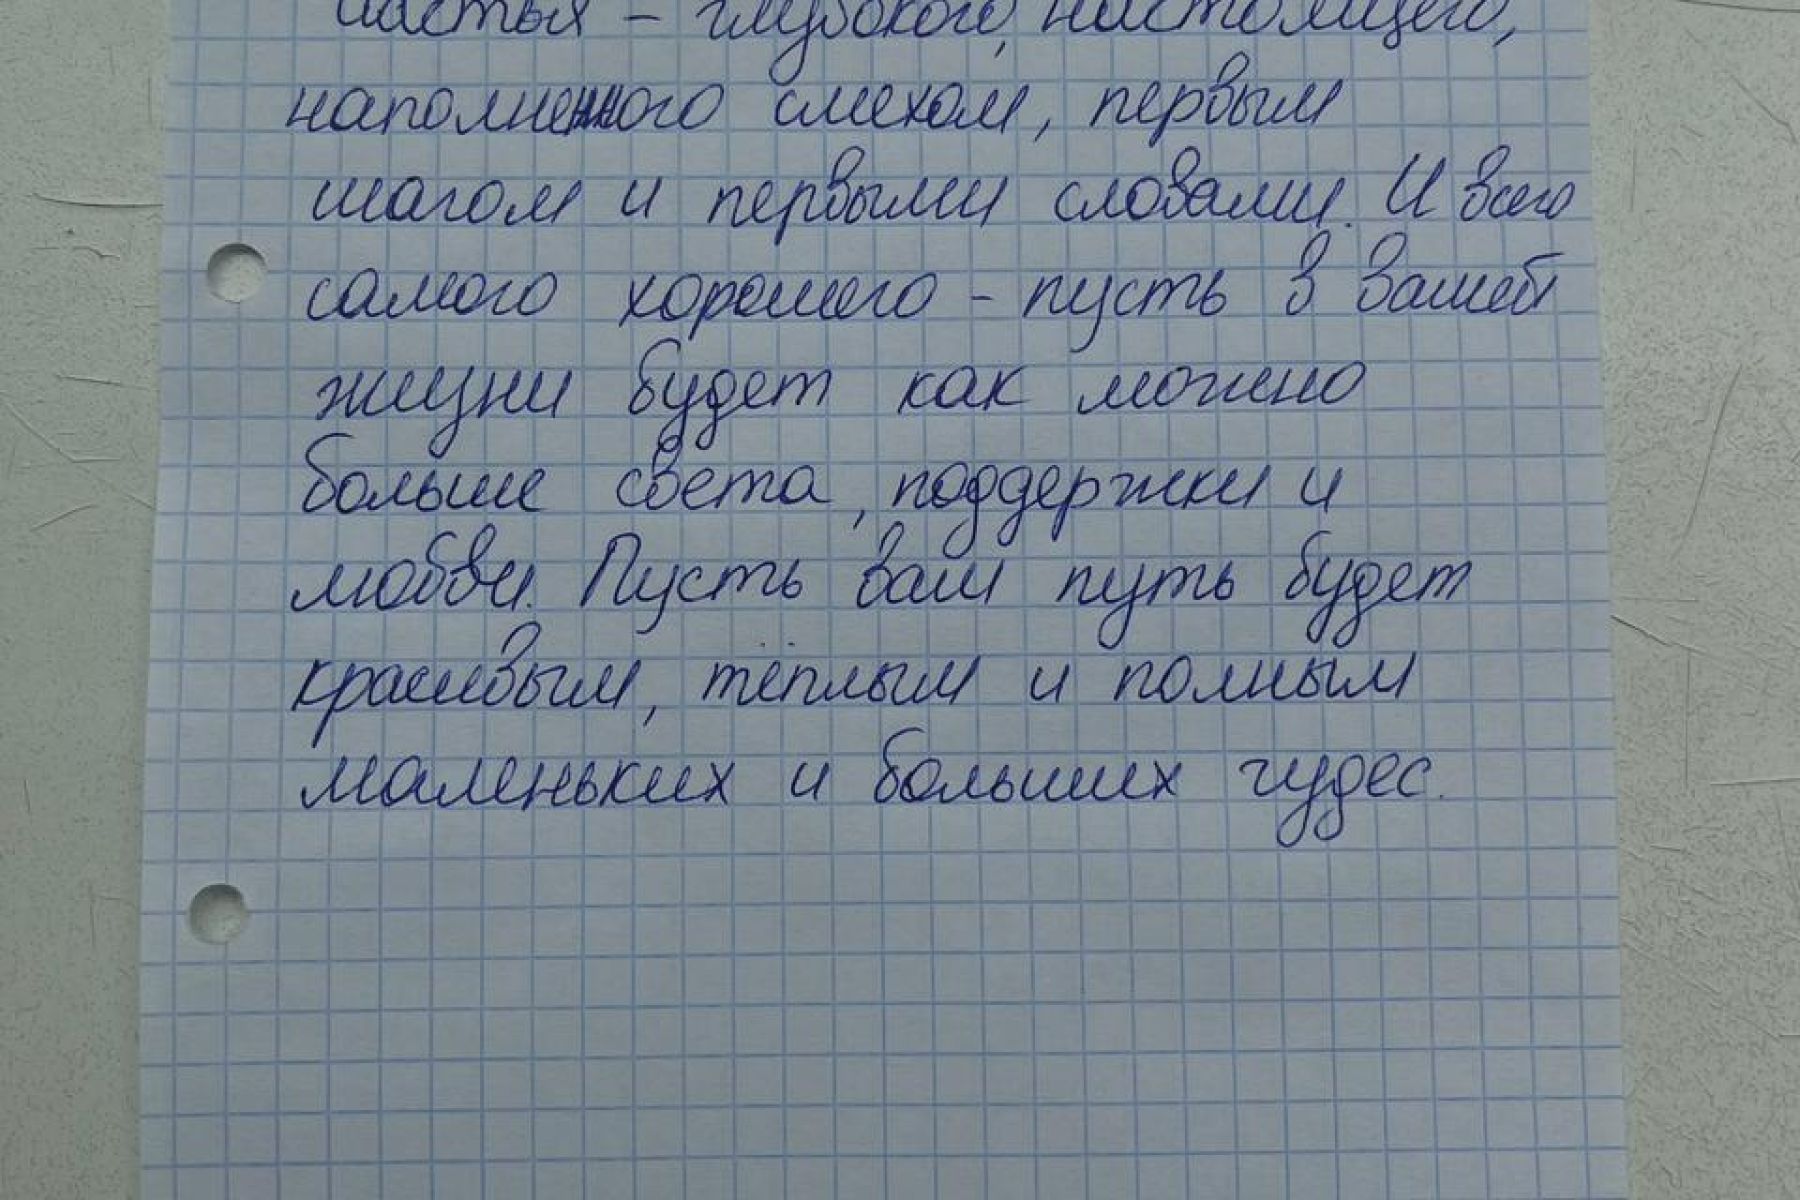 счастья – глубокого, настоящего,
наполненного смехом, первым
шагом и первыми словами. И всего
самого хорошего – пусть в вашей
жизни будет как можно
больше света, поддержки и
любви. Пусть ваш путь будет
красивым, тёплым и полным
маленьких и больших чудес.